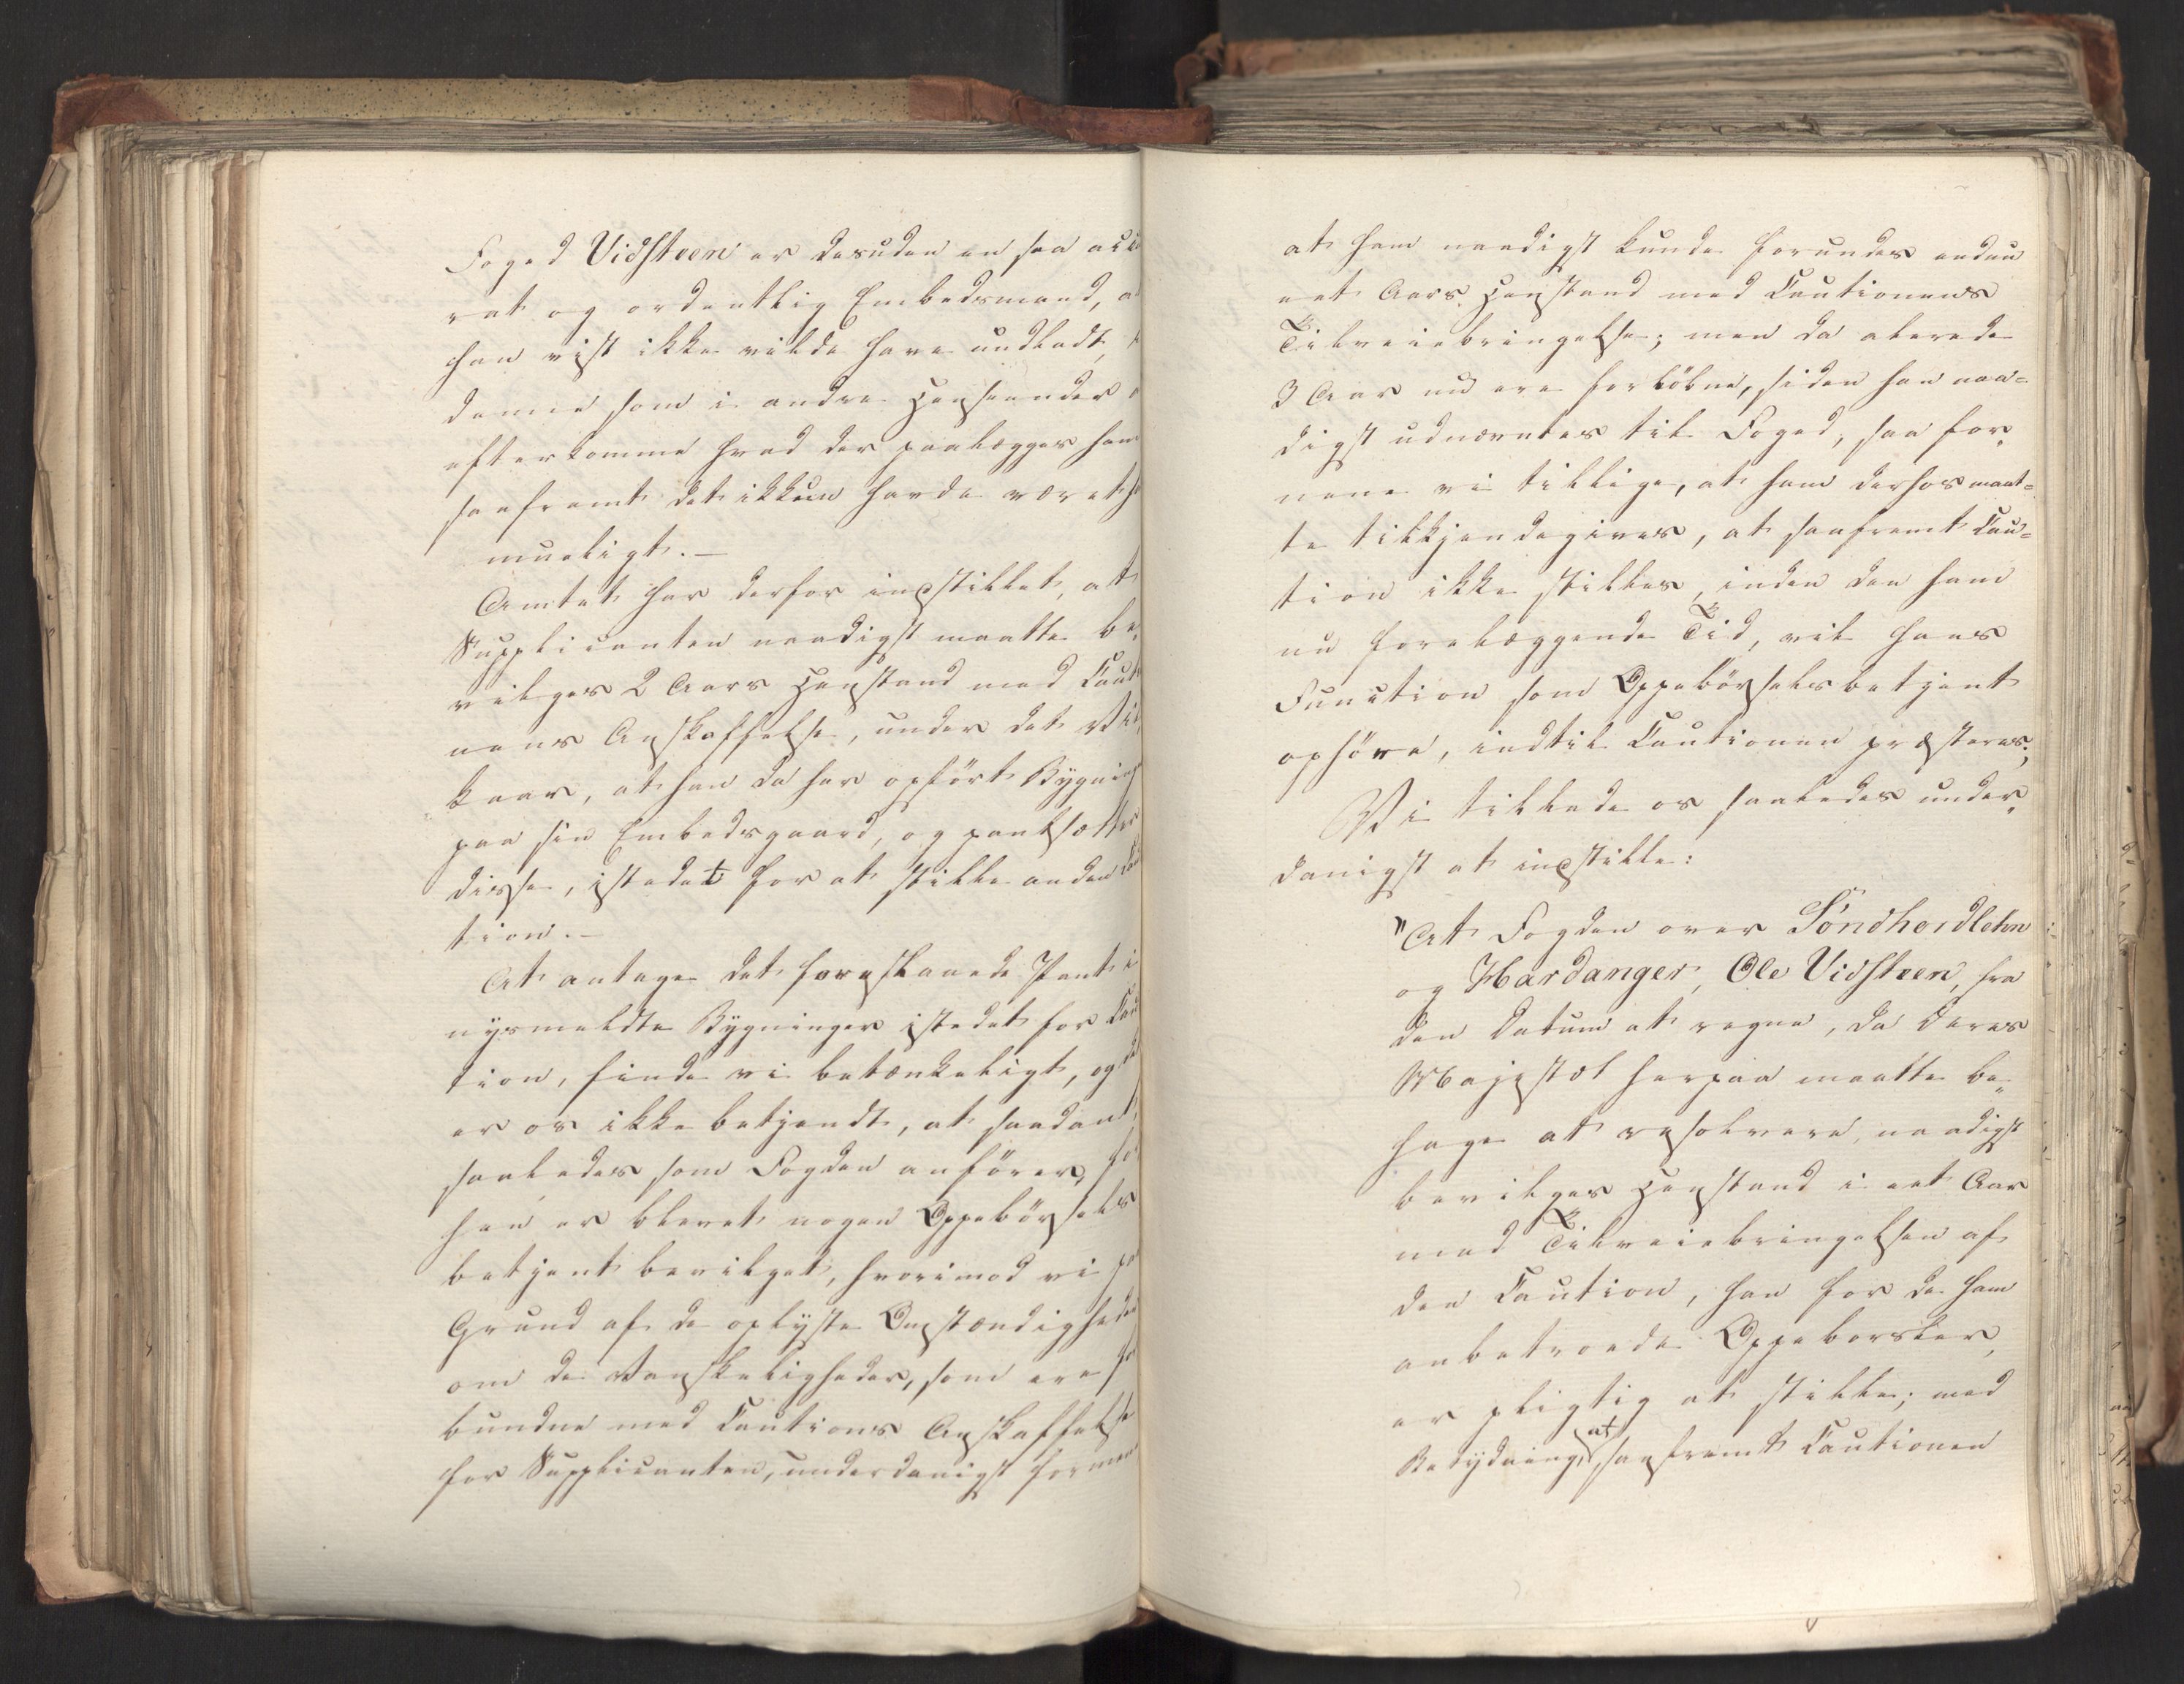 Foged Vidsteen er desuden en saa accu
rat og ordentlig Embedsmand, at
han vist ikke vilde have undladt, i
denne som i andre Henseender
efterkomme hvad der paalægges ham
saafremt det ikkun havde været ham
mueligt.—
Amtet har derfor indstillet, at
Supplicanten naadigst maatte be„
vilges 2 Aars Henstand med Cauti
nens Anskaffelse, under det Vil
kaar, at han da har opført Bygning
paa sin Embedsgaard, og pantsætter
disse, istedet for at stille anden Cau
tion.—
At antage det foreslaaede Pant i
nysmeldte Bygninger istedet for Cau
tion, finde vi betænkeligt, og
er os ikke bekjendt, at saadant,
saaledes som Fogden anfører, før
hen er blevet nogen Oppebørsels
betjent bevilget, hvorimod vi paa
Grund af de oplyste Omstændigheder
om de Vanskeligheder, som ere for
bundne med Cautions Anskaffelse
for Supplicanten, underdanigst formene
at ham naadigst kunde forundes endnu
eet Aars Henstand med Cautionens
Tilveiebringelse; men da allerede
3 Aar nu ere forløbne, siden han naa=
digst udnævntes til Foged, saa for„
mene vi tillige, at ham derhos maat=
te tilkjendegives, at saafremt Cau=
tion ikke stilles, inden den ham
nu forelæggende Tid, vil hans
Function som Oppebørselsbetjent
ophøre, indtil Cautionen præsteres.
Vi tillade os saaledes under„
danigst at indstille:
"At Fogden over Söndhordlehn
og Hardanger, Ole Vidsteen, fra
den Datum at regne, da Deres
Majestæt herpaa maatte be„
hage at resolvere, naadigst
bevilges Henstand i eet Aar
med Tilveiebringelsen af
den Caution, han for de ham
anbetroede Oppebørsler,
er pligtig at stille; med
Betydning, at saafremt Cautionen